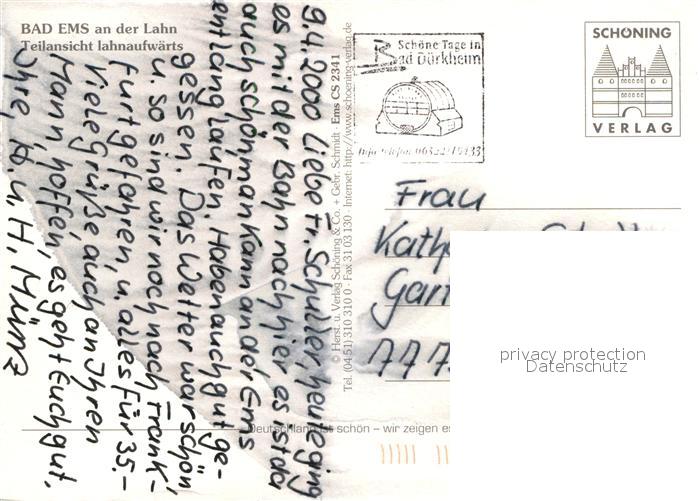 BAD EMS an der Lahn
Teilansicht lahnaufwärts
9.4.2000 Liebe Fr. Schuller, heute ging
es mit der Bahn nach hier es ist da
auch schön man kann an der Ems
entlang laufen. Haben auch gut ge-
gessen. Das Wetter war schön
u. so sind wir noch nach Frank-
furt gefahren, u. alles für 35.-
Viele Grüße auch an Ihren
Mann, hoffen, es geht Euch gut,
Ihre, u. H. Münz
© Herst. u. Verlag Schöning & Co. + Gebr. Schmidt · Ems CS 2341
Tel. (04 51) 310 310 0 · Fax 31 03 130 · Internet: http://www.schoening-verlag.de
Schöne Tage in
Bad Dürkheim
SCHÖNING
VERLAG
Frau
Deutschland ist schön – wir zeigen es
privacy protection
Datenschutz